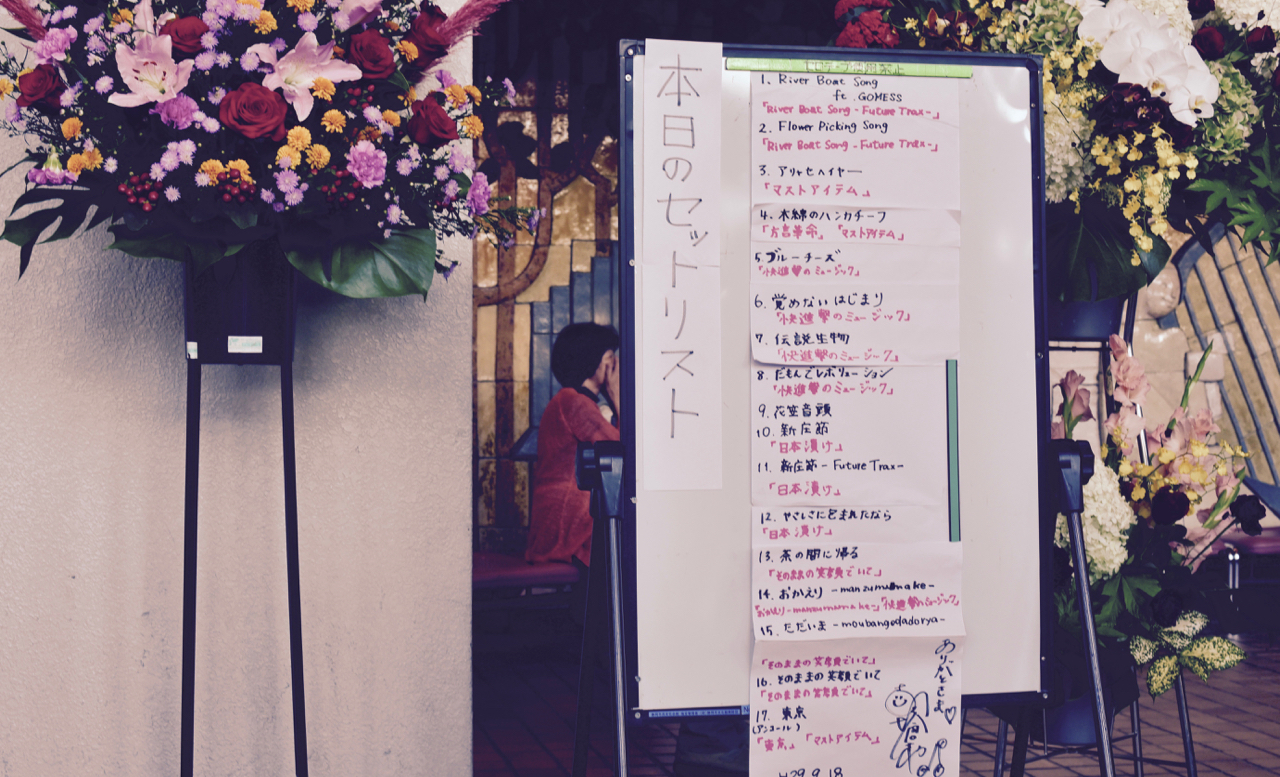 本日のセットリスト
1. River Boat Song
ft. GOMESS
「River Boat Song - Future Trax-」
2. Flower Picking Song
「River Boat Song - Future Trax-」
3. アリャセヘイヤー
「マストアイテム」
4. 木綿のハンカチーフ
「方言革命」「マストアイテム」
5. ブルーチーズ
「快進撃のミュージック」
6. 覚めないはじまり
「快進撃のミュージック」
7. 伝説生物
「快進撃のミュージーク」
8. だもんでレボリューション
「快進撃のミュージック」
9. 花笠音頭
10. 新庄節
「日本漬け」
11. 新庄節 - Future Trax-
「日本漬け」
12. やさしさに包まれたなら
「日本漬け」
13. 茶の間に帰る
「そのままの笑顔でいて」
14. おかえり -manzumumake-
「おかえり-manzumumake-」「快進撃のミュージック」
15. ただいま -moubangedadorya-
「そのままの笑顔でいて」
16. そのままの笑顔でいて
「そのままの笑顔でいて」
17. 東京
(アンコール)
「東京」「マストアイテム」
ありがとさま♡
H29.9.18